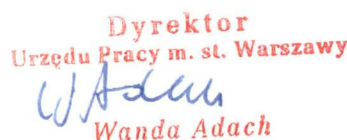 Dyrektor
Urzędu Pracy m. st. Warszawy
W Adach
Wanda Adach